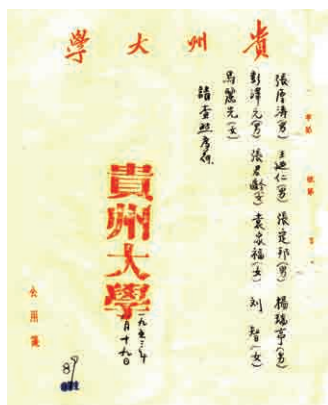 貴州大學
張厚濤(男) 王迪仁(男) 張定邦(男) 楊瑞亭(男)
彭澤元(男) 張君齡(女) 袁家福(女) 刘智(女)
馬麗先(女)
請查照為何
貴州大學
一九五三年
月十九日
公用箋
89